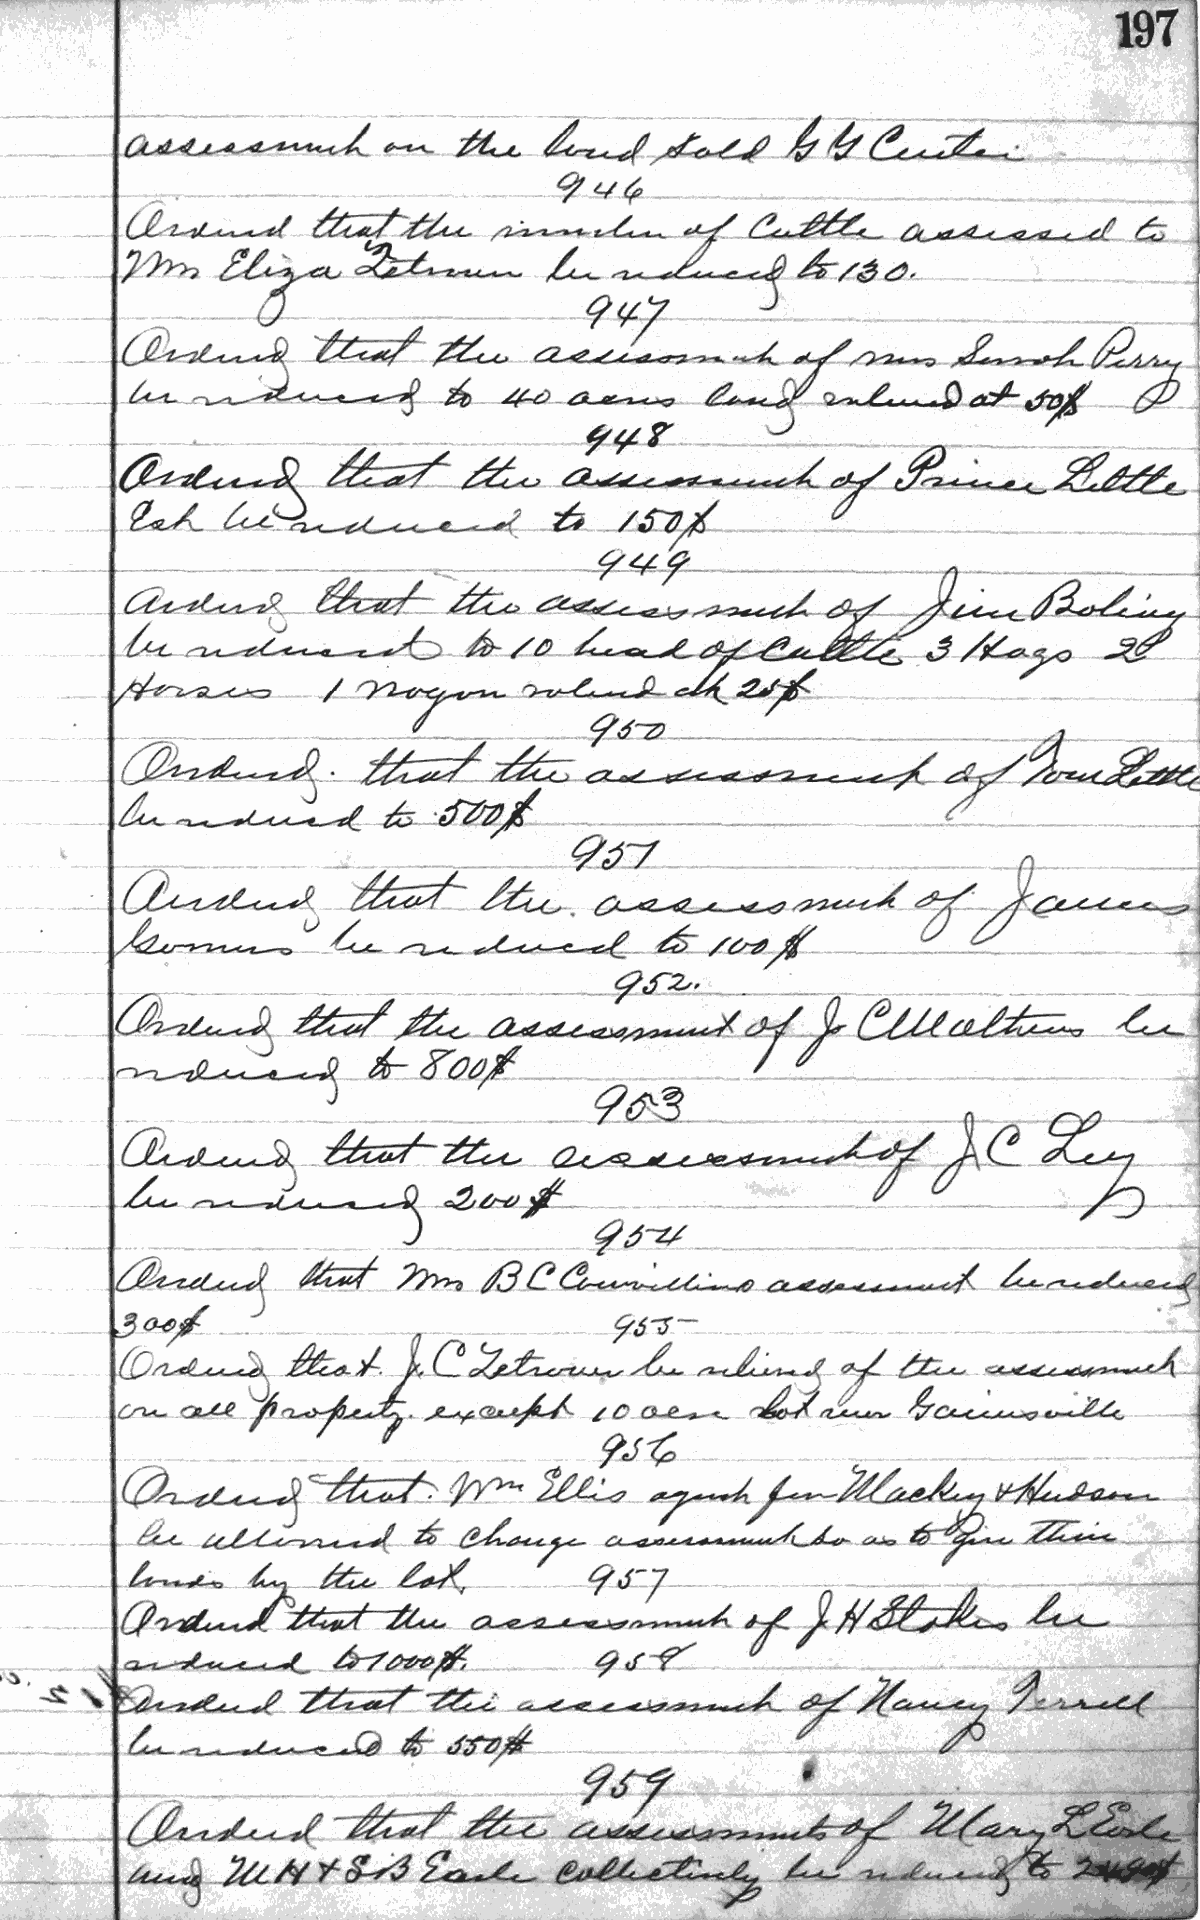 197
assessment on the land sold G G Custer
946
Ordered that the number of Cattle assessed to
Mrs Eliza Zetrouer be reduced to 130.
947
Ordered that the assessment of mrs Sarah Perry
be reduced to 40 acres land valued at 50$
948
Ordered that the assessment of Prince Little
Est be reduced to 150$
949
Ordered that the assessment of Jim Boling
be reduced to 10 head of Cattle 3 Hogs 2
Horses 1 Wagon valued at 25$
950
Ordered that the assessment of Tom Little
be reduced to 500$
951
Ordered that the assessment of James
be reduced to 100$
952.
Ordered that the assessment of J C Mathews be
reduced to 800$
953
Ordered that the assessment of J C Ley
be reduced 200$
954
Ordered that Mrs B C assessment be reduced
300$ 955
Ordered that J. C Zetrouer be relieved of the assessment
on all property except 10 acre lot near Gainesville
956
Ordered that Wm Ellis agent for Mackey & Hudson
be allowed to change assessment so as to give their
lands by the lot. 957
Ordered that the assessment of J H Stokes be
reduced to 1000$. 958
Ordered that the assessment of Nancy Terrell
be reduced to 550$
959
Ordered that the assessments of Mary L Earle
and M H & S B Earle collectively be reduced to